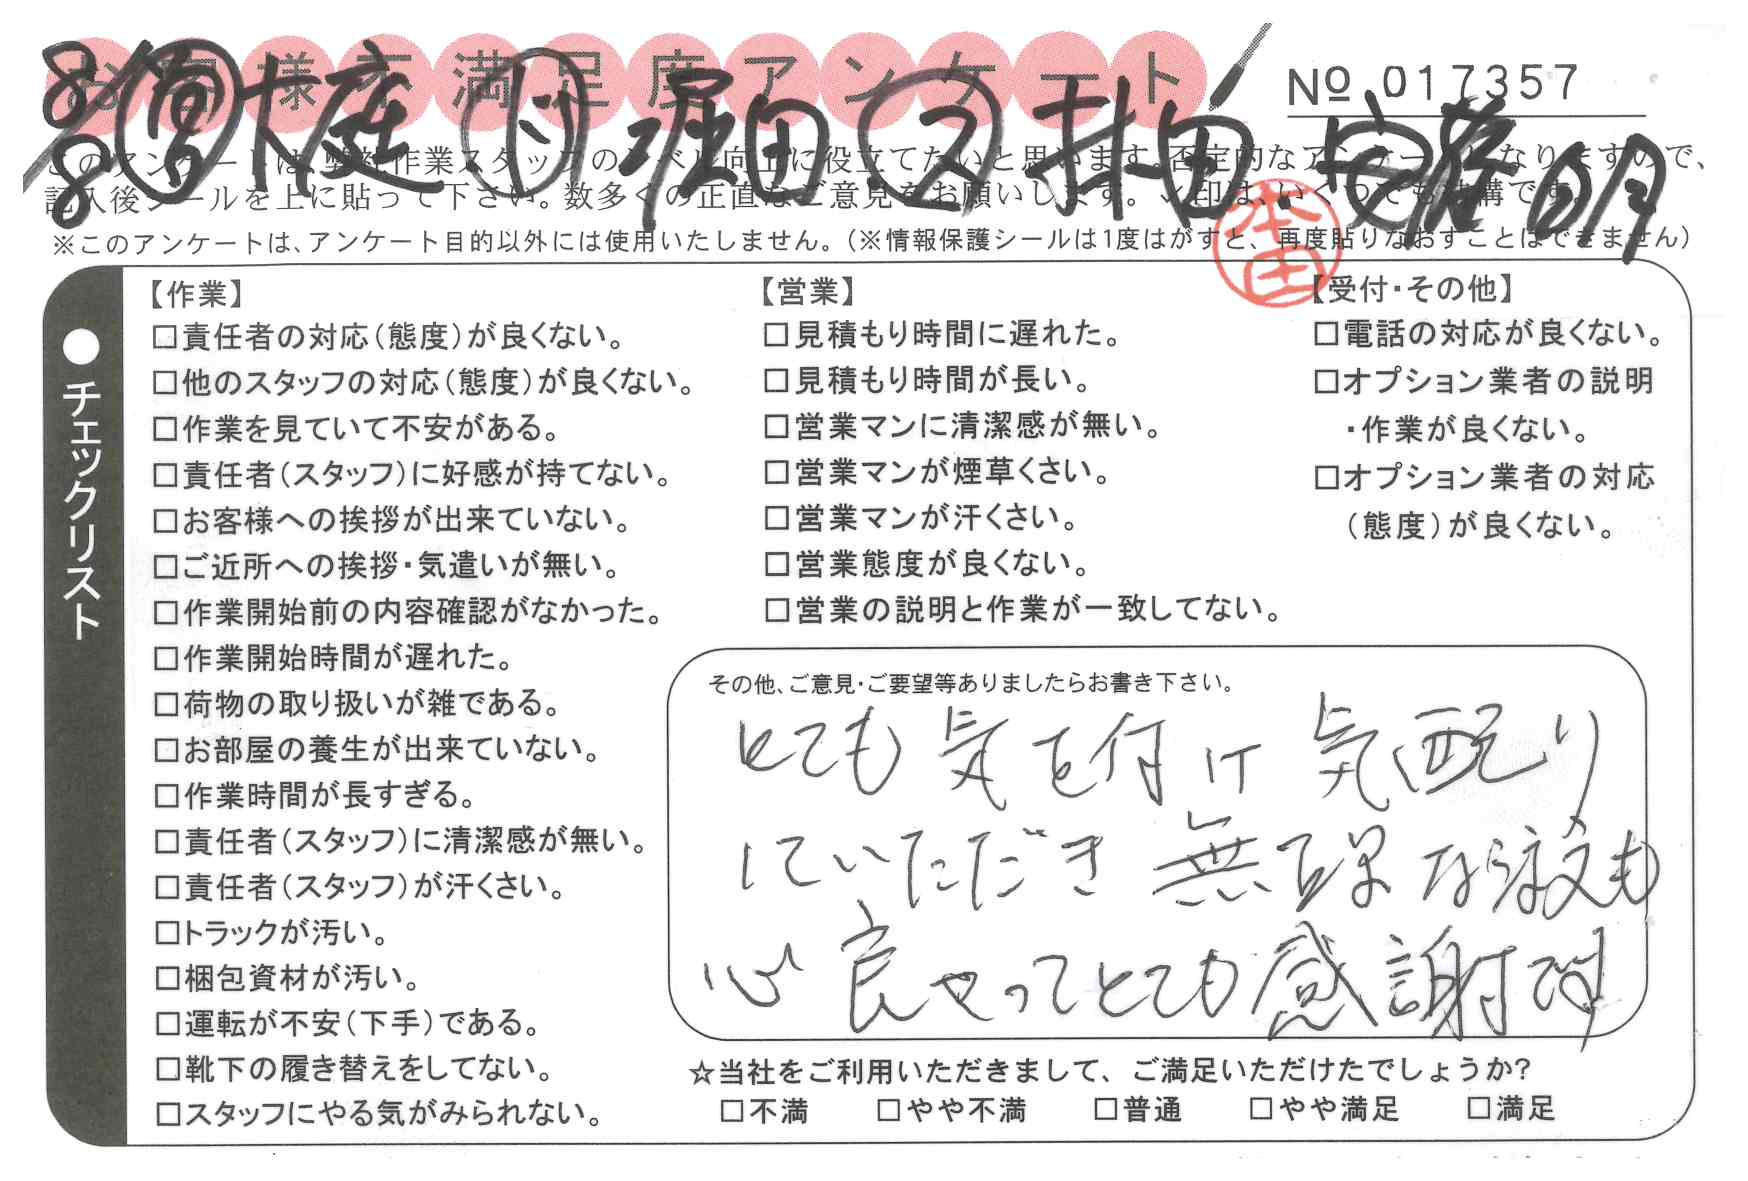 お客様不満足度アンケート
№ 017357
8/8 営 大庭 ト 堀田 ス 村田 安藤 明
このアンケートは、弊社作業スタッフのレベル向上に役立てたいと思います。否定的なアンケートになりますので、
記入後シールを上に貼って下さい。数多くの正直なご意見をお願いします。✓印は、いくつでも結構です。
※このアンケートは、アンケート目的以外には使用いたしません。（※情報保護シールは1度はがすと、再度貼りなおすことはできません）
本田
●チェックリスト
【作業】
□責任者の対応（態度）が良くない。
□他のスタッフの対応（態度）が良くない。
□作業を見ていて不安がある。
□責任者（スタッフ）に好感が持てない。
□お客様への挨拶が出来ていない。
□ご近所への挨拶・気遣いが無い。
□作業開始前の内容確認がなかった。
□作業開始時間が遅れた。
□荷物の取り扱いが雑である。
□お部屋の養生が出来ていない。
□作業時間が長すぎる。
□責任者（スタッフ）に清潔感が無い。
□責任者（スタッフ）が汗くさい。
□トラックが汚い。
□梱包資材が汚い。
□運転が不安（下手）である。
□靴下の履き替えをしてない。
□スタッフにやる気がみられない。
【営業】
□見積もり時間に遅れた。
□見積もり時間が長い。
□営業マンに清潔感が無い。
□営業マンが煙草くさい。
□営業マンが汗くさい。
□営業態度が良くない。
□営業の説明と作業が一致してない。
【受付・その他】
□電話の対応が良くない。
□オプション業者の説明
・作業が良くない。
□オプション業者の対応
（態度）が良くない。
その他、ご意見・ご要望等ありましたらお書き下さい。
とても気を付け 気配り
していただき 無理な注文も
心良くやってとても感謝です
☆当社をご利用いただきまして、ご満足いただけたでしょうか?
□不満 □やや不満 □普通 □やや満足 □満足